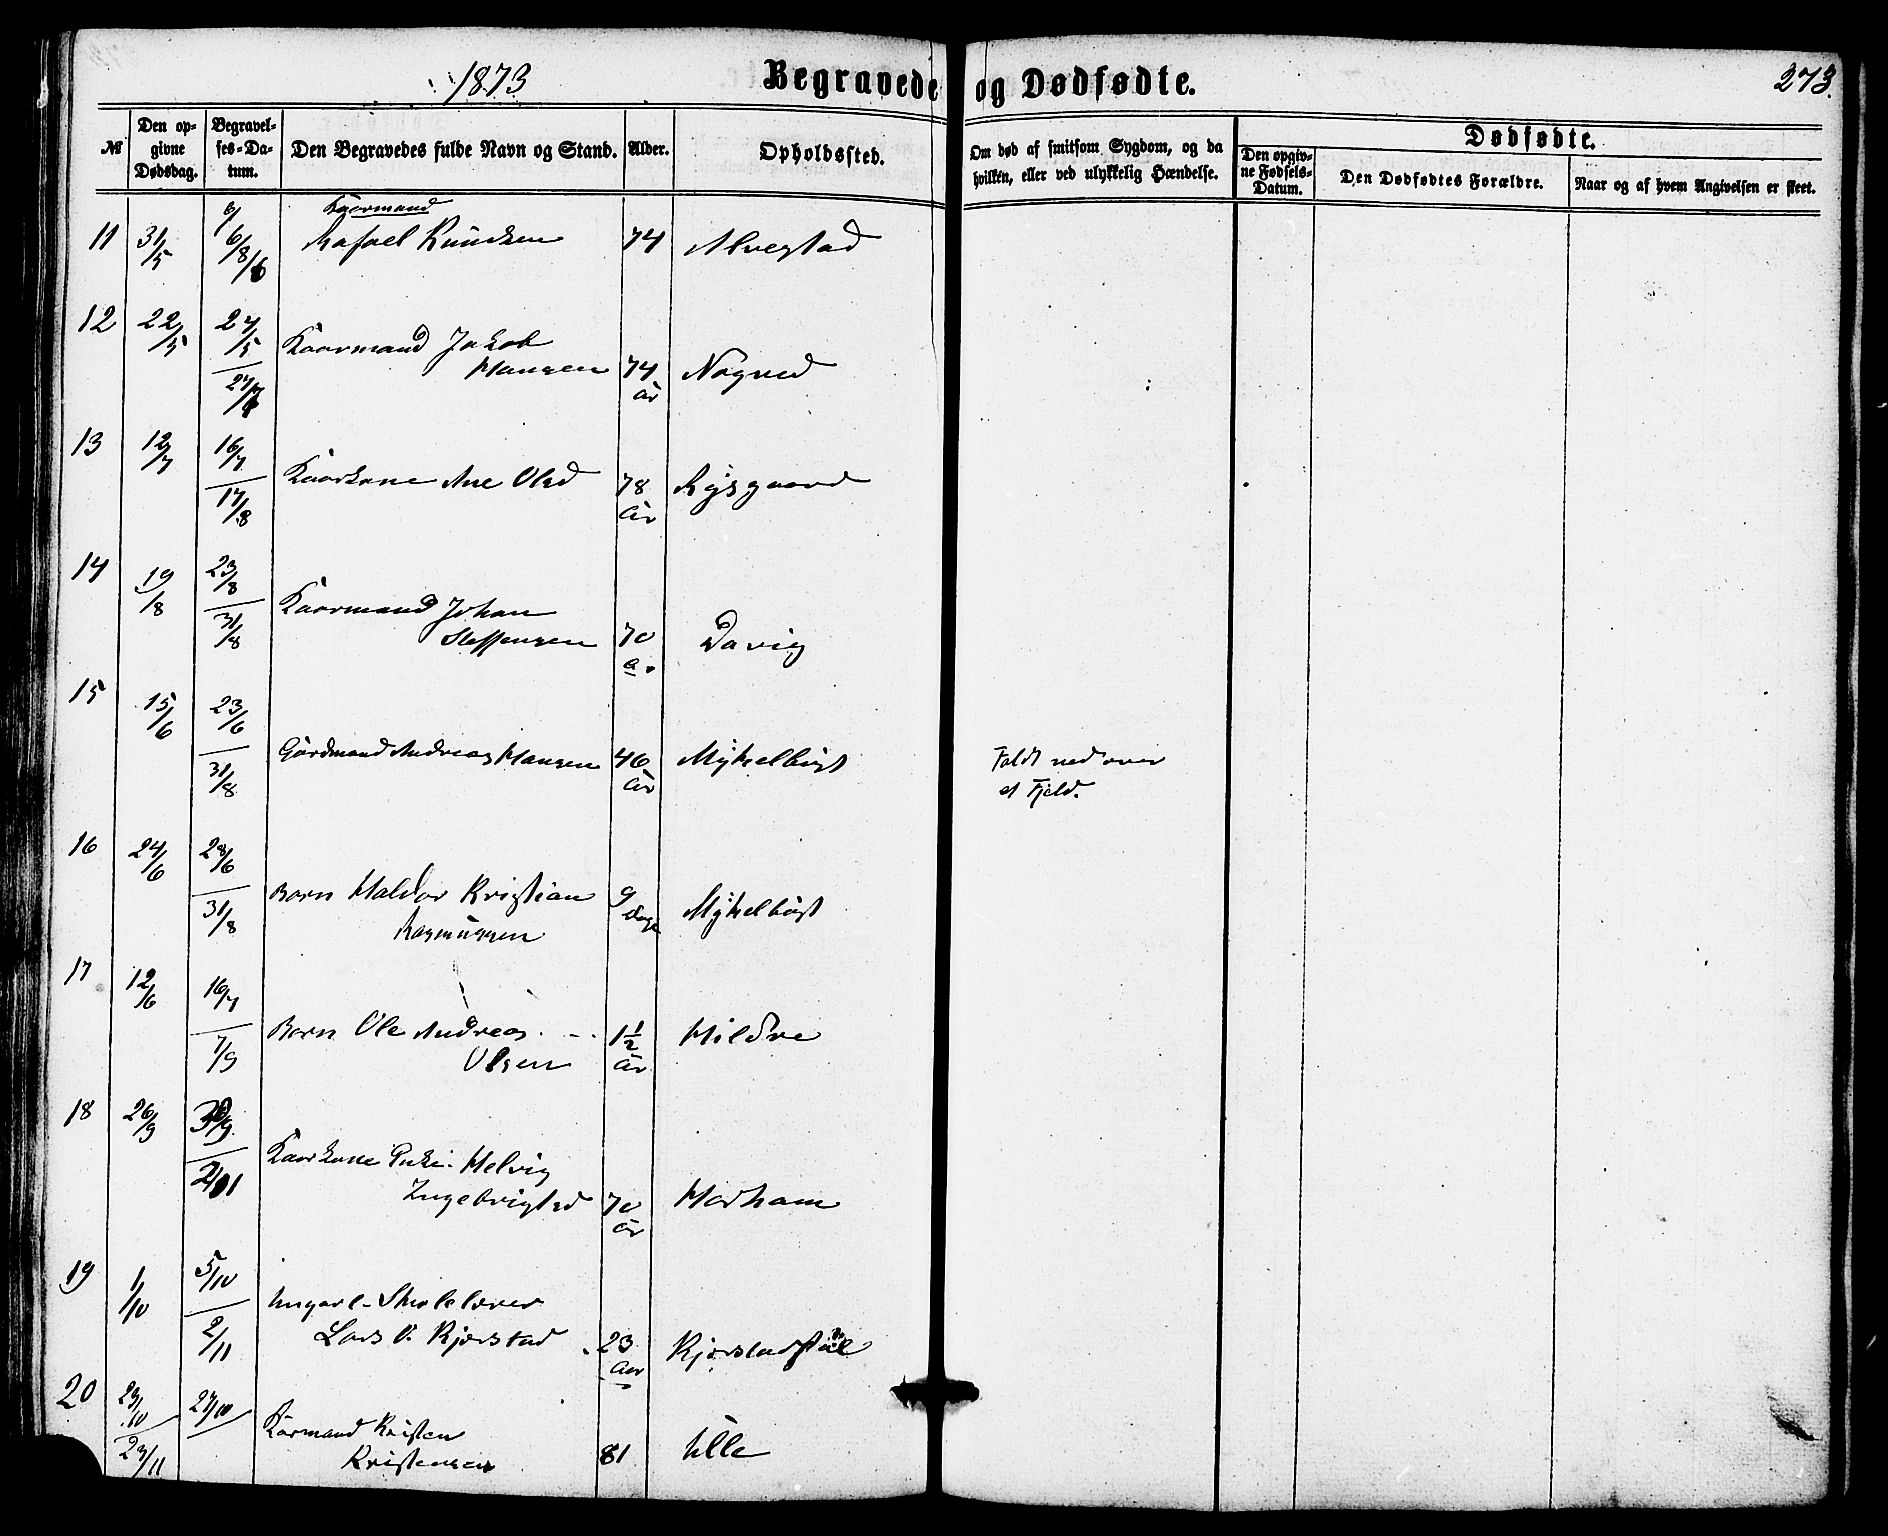 1873 Begravede og Dødfødte. 273.
№ Den opgivne Dødsdag. Begravelses-Datum. Den Begravedes fulde Navn og Stand. Alder. Opholdssted. Om død af smitsom Sygdom, og da hvilken, eller ved ulykkelig Hændelse. Dødfødte. Den opgivne Fødsels-Datum. Den Dødfødtes Forældre. Naar og af hvem Angivelsen er skeet.
Kaarmand
11 31/5 6/6 8/6 Rafael Knudsen 74 Alvestad
12 22/5 27/5 Kaarmand Jakob
27/7 Hansen 74 år Nogved
13 12/7 16/7 Kaarkone Ane Olsd 78 år Rysgaard
17/8
14 19/8 23/8 Kaarmand Johan
31/8 Steffensen 70 a. Davig
15 15/6 23/6
31/8 Gårdmand Andreas Hansen 46 år Myhelbust Faldt ned over
et Fjeld.
16 24/6 28/6
31/8 Barn Haldor Kristian 9 dage Myhelbust
Rasmussen
17 12/6 16/7
7/9 Barn Ole Andreas 1½ år Hildre
Olsen
18 26/9 30/9
Kaarkone Helvig
Ingebrigtsd 70 år Harham
19 1/10 5/10 Ungarl - Skolelærer
2/11 Lars O. Kjærstad 23 Aar
20 23/10 27/10 Kårmand Kristen
23/11 Kristensen 81 Ulle